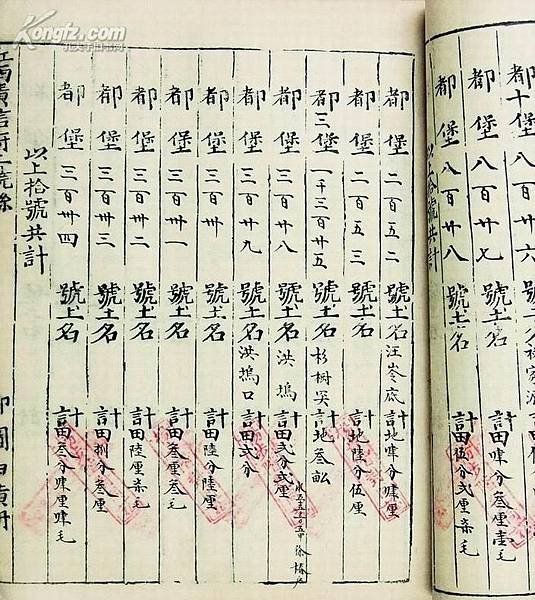 Kongfz.com
孔夫子旧书网
都十堡八百廿六號土名
都堡八百廿七號土名計田肆分叁厘壹毛
都堡八百廿八號土名計田伍分弍厘柒毛
以上拾號共計
都堡二百五二號土名汪岺底計地肆分肆厘
都堡二百五三號土名計地陸分伍厘
都三堡一千三百廿五號土名杉樹計地叁畝
都堡三百廿八號土名洪塢計田弍分弍厘
都堡三百廿九號土名洪塢口計田弍分
都堡三百卅號土名計田陸分陸厘
都堡三百卅一號土名計田叁厘叁毛
都堡三百卅二號土名計田陸厘柒毛
都堡三百卅三號土名計田捌分叁厘
都堡三百卅四號土名計田叁分肆厘肆毛
以上拾號共計